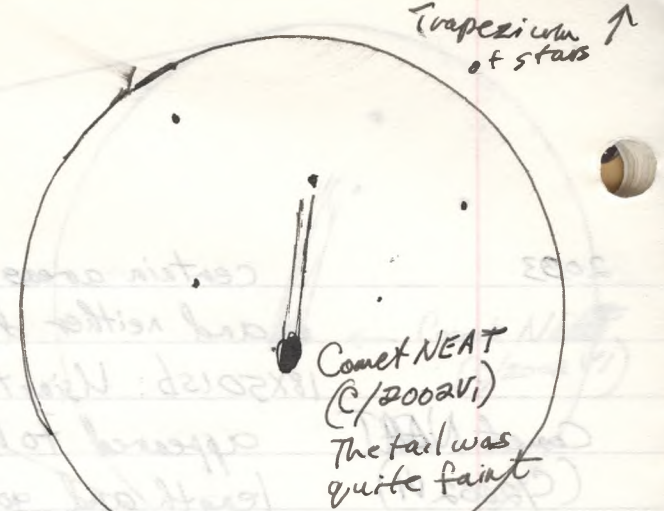 Trapezium ↑
of stars
Comet NEAT
(C/2002V1)
The tail was
quite faint